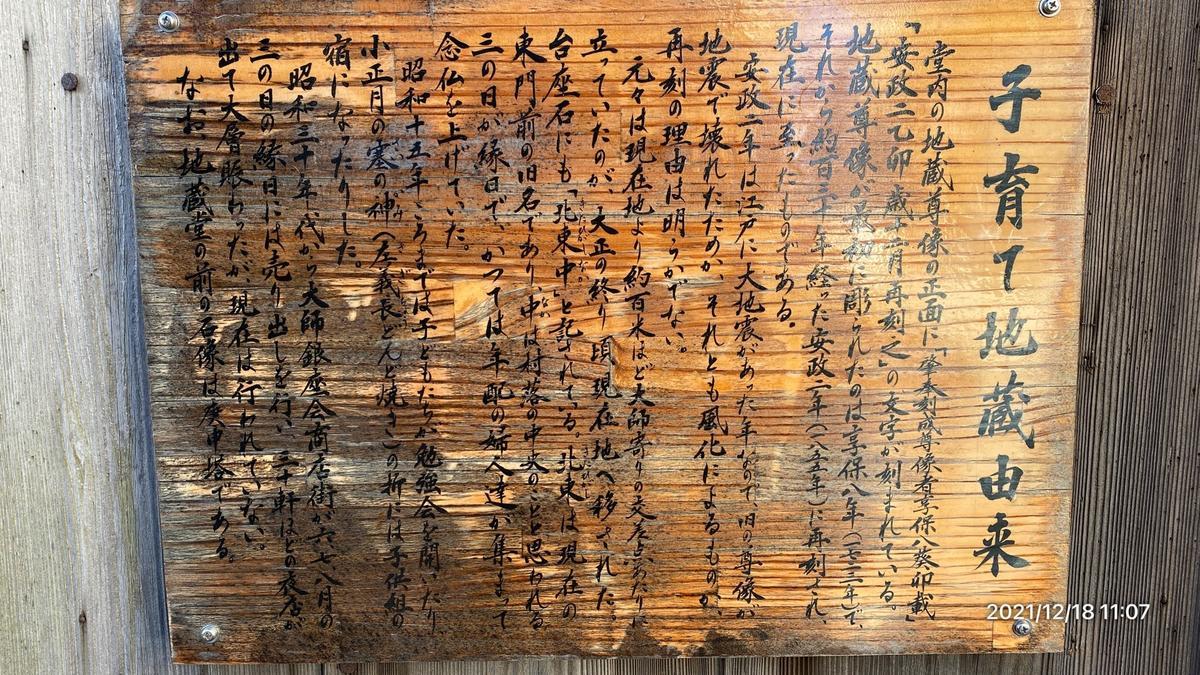 子育て地蔵由来
堂内の地蔵尊像の正面に「肇奉刻成尊像者享保八癸卯載」
「安政二乙卯歳十二月再刻之」の文字が刻まれている。
地蔵尊像が最初に彫られたのは享保八年(一七二三年)で、
それから約百三十年経った安政二年(一八五五年)に再刻され、
現在に至ったものである。
安政二年は江戸に大地震があった年なので、旧の尊像が
地震で壊れたためか、それとも風化によるものか、
再刻の理由は明らかでない。
元々は現在地より約百米ほど大師寄りの交差点あたりに
立っていたのが、大正の終り頃、現在地へ移された。
台座石にも「北東中」と記されている。北東は現在の
東門前の旧名であり、中は村落の中央のことと思われる
三の日が縁日で、かつては年配の婦人達が集まって
念仏を上げていた。
昭和十五年ごろまでは子どもたちが勉強会を開いたり
小正月の塞の神(左義長どんと焼き)の折には子供組の
宿になったりした。
昭和三十年代から大師銀座会商店街が六、七、八月の
三の日の縁日には売り出しを行い、三十軒ほどの夜店が
出て大層賑わったが、現在は行われていない。
なお地蔵堂の前の石像は庚申塔である。
2021/12/18 11:07